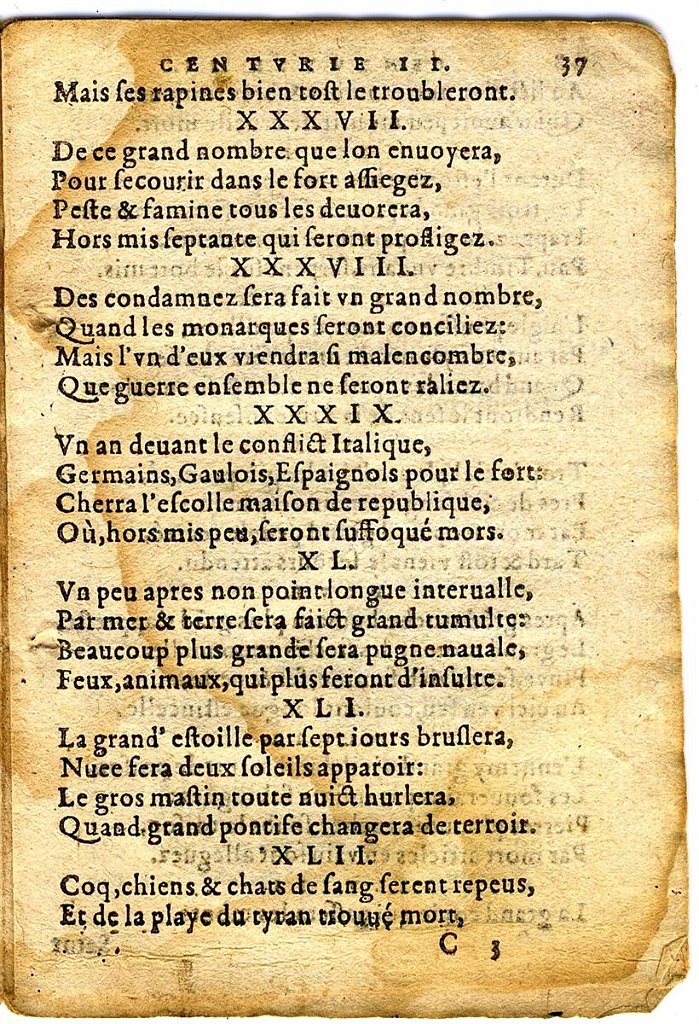 CENTVRIE II. 37
Mais ſes rapines bien toſt le troubleront.
XXXVII.
De ce grand nombre que lon enuoyera,
Pour ſecourir dans le fort aſſiegez,
Peſte & famine tous les deuorera,
Hors mis ſeptante qui ſeront profligez.
XXXVIII.
Des condamnez ſera fait vn grand nombre,
Quand les monarques ſeront conciliez:
Mais l'vn d'eux viendra ſi malencombre,
Que guerre enſemble ne ſeront raliez.
XXXIX.
Vn an deuant le conflict Italique,
Germains, Gaulois, Eſpaignols pour le fort:
Cherra l'eſcolle maiſon de republique,
Où, hors mis peu, ſeront ſuffoqué mors.
XL.
Vn peu apres non point longue interualle,
Par mer & terre ſera faict grand tumulte:
Beaucoup plus grande ſera pugne nauale,
Feux, animaux, qui plus feront d'inſulte.
XLI.
La grand' eſtoille par ſept iours bruſlera,
Nuee fera deux ſoleils apparoir:
Le gros maſtin toute nuict hurlera,
Quand grand pontife changera de terroir.
XLII.
Coq, chiens & chats de ſang ſerent repeus,
Et de la playe du tyran trouué mort,
C 3